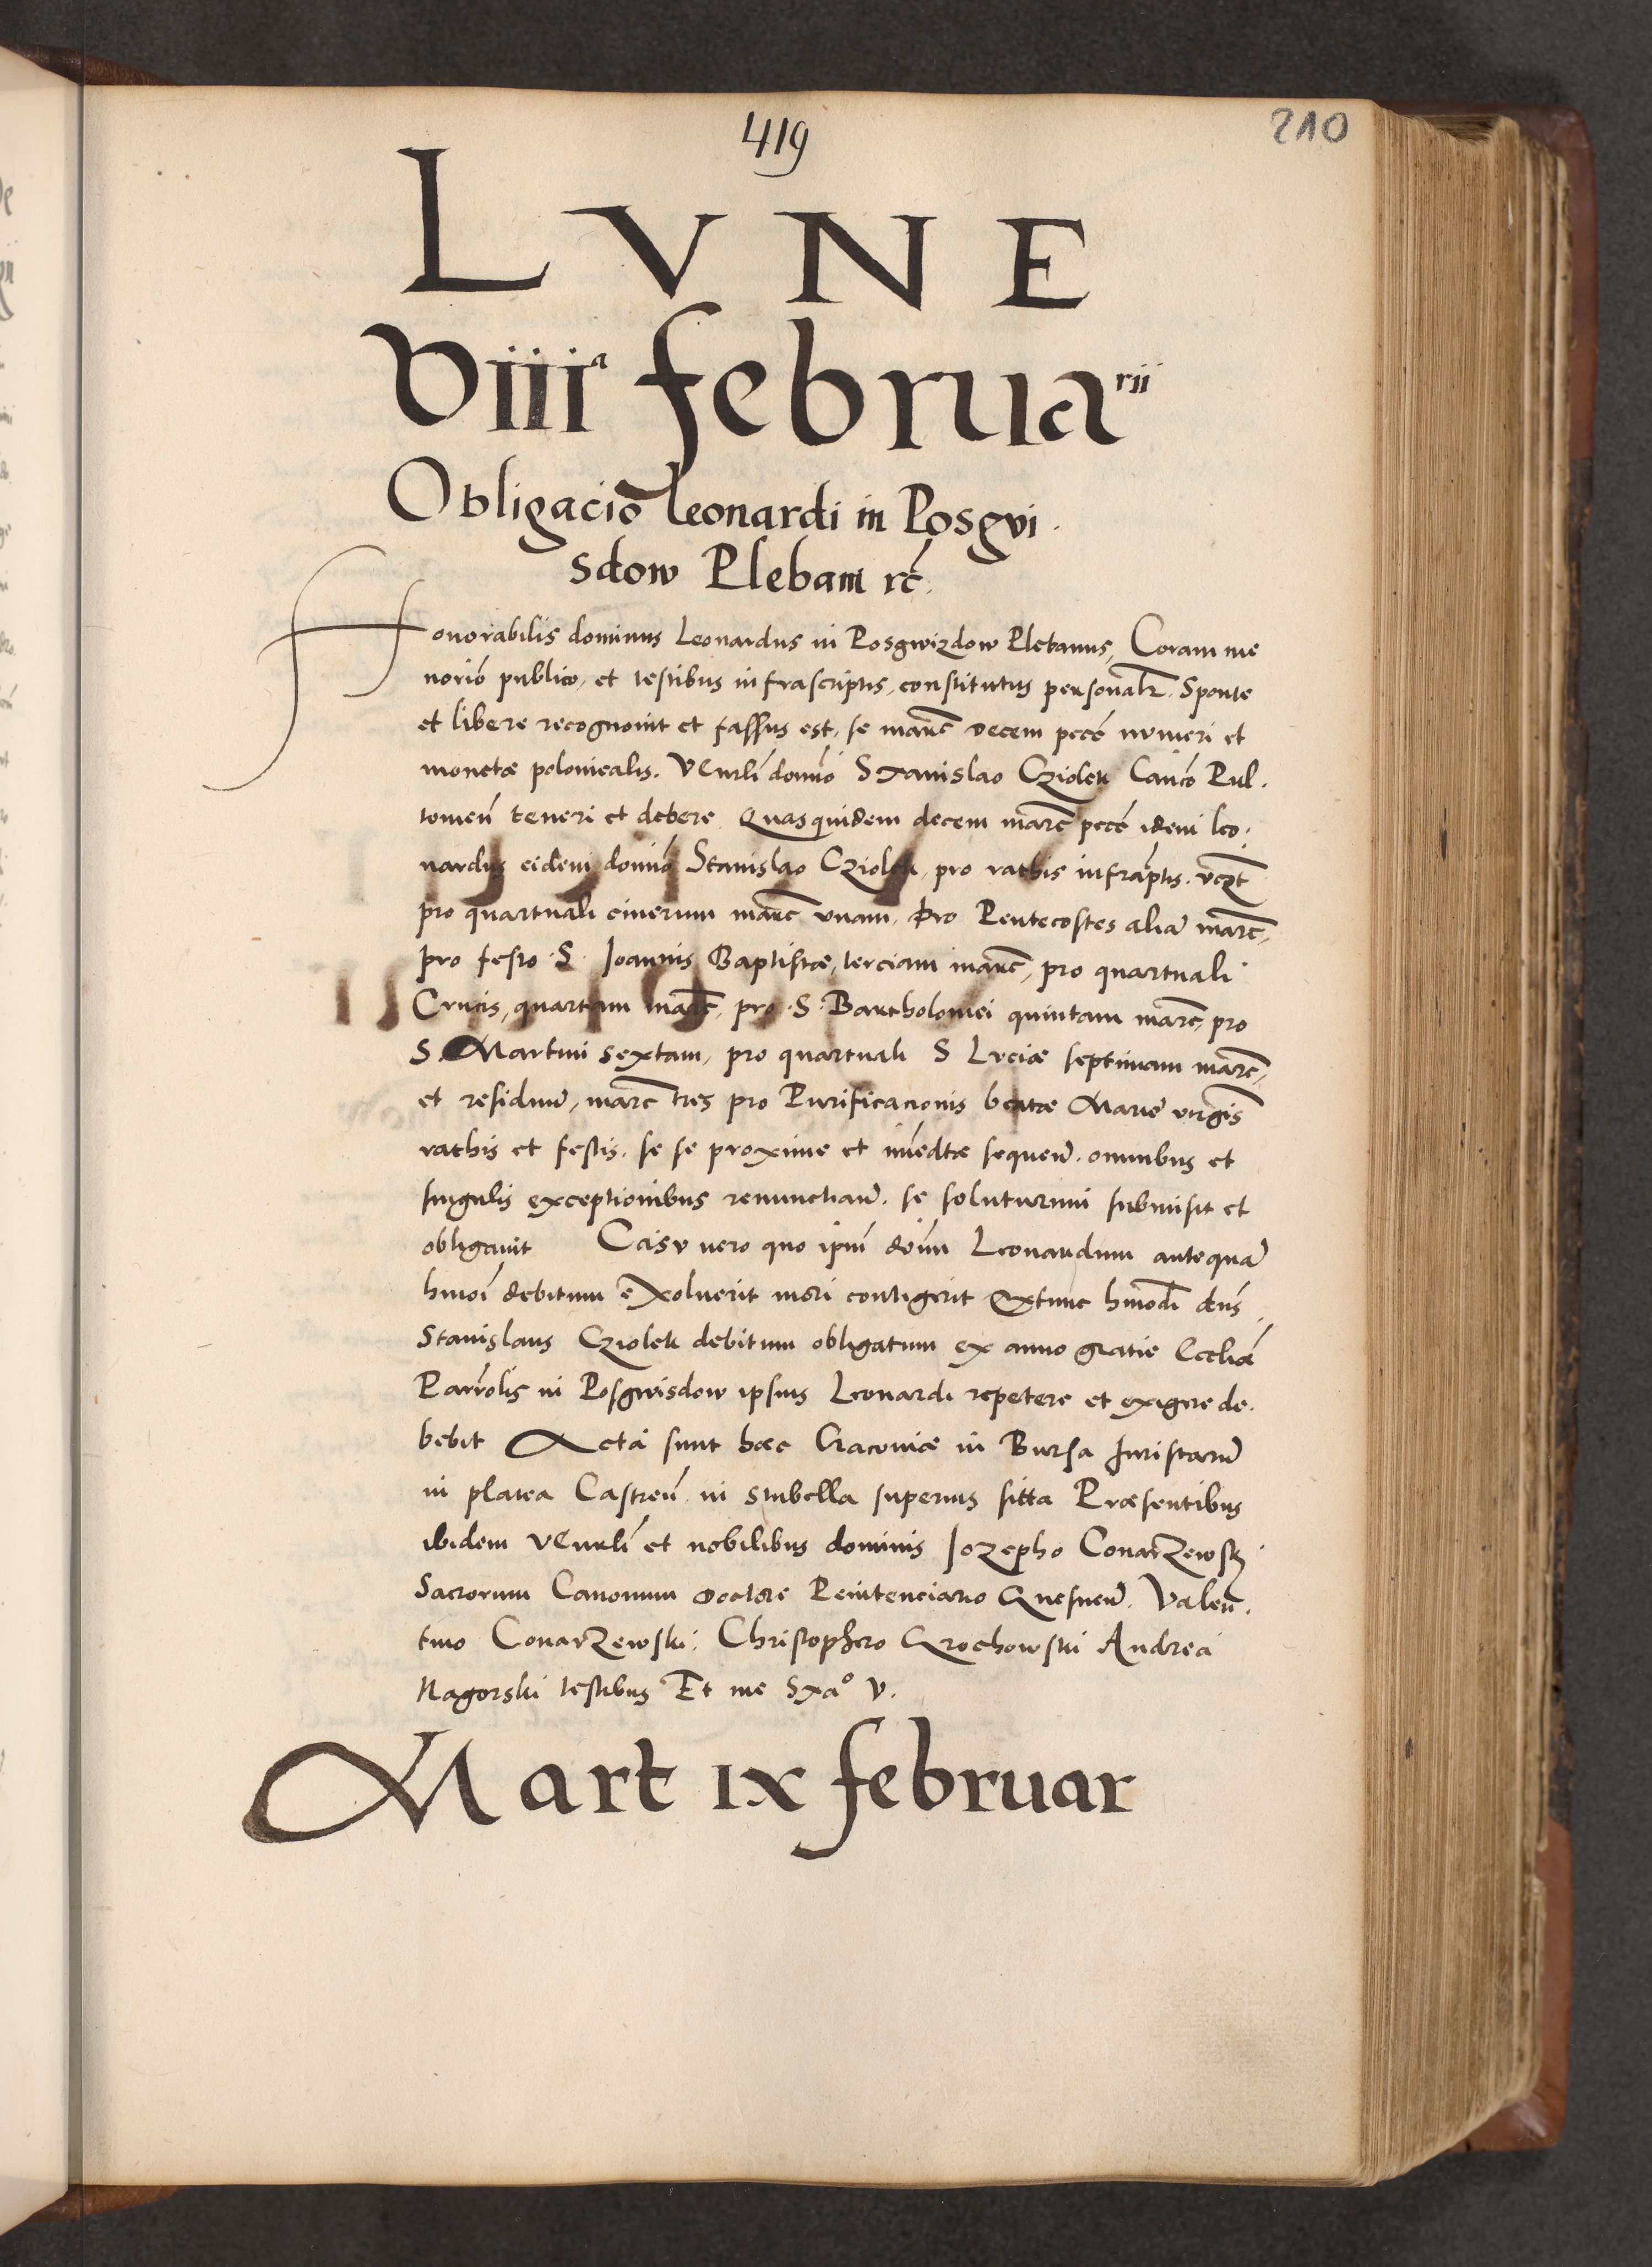 419
210
LVNE
viiiª februarii
Obligacio leonardi in Posgvi
sdow Plebani rc.
Honorabilis dominus Leonardus in Posgwizdow Plebanus, Coram me
norio publico, et testibus infrascriptis, constitutus personalr. Sponte
et libere recognovit et fassus est, se marc decem pecc numeri et
monetæ polonicalis. VEnrli domno Stanislao Cziolek Canco Pul.
tovien teneri et debere Quas quidem decem marc pecc idem leo.
nardus eidem domno Stanislao Cziolek, pro rathis infraptis. vcqt
pro quartuali cinerum marc vnam, Pro Pentecostes alia marc,
pro festo S. Joannis Baptistæ, terciam marc, pro quartuali
Crucis, quartam marc, pro S. Bartholomei quintam marc, pro
S. Martini sextam, pro quartuali S Lvciæ septimam marc,
et residuu, marc tres pro Purificacionis beatæ Marie virgis
rathis et festis. se se proxime et imedtæ sequen. omnibus et
singulis exceptionibus renunctian. se soluturum submisit et
obligavit Casv vero quo ipm dom Leonardum antequa
hmoi debitum exoluerit mori contigerit Extunc hmodi dns
Stanislaus Cziolek debitum obligatum ex anno gratie Eccliæ
Parrolis in Posgwisdow ipsius Leonardi repetere et exigere de.
bebit Acta sunt hæc Cracoviæ in Bursa Juristaru
in platea Castren. in stubella superius sitta Præsentibus
ibidem VEnrli et nobilibus dominis Jozepho Conarzewski
Sacrorum Canonum doctore Penitenciario Gnesnen. Valen.
tino Conarzewski: Christophero Grochowski Andrea
Nagorski testibus Et me Staº V.
Mart ix februar